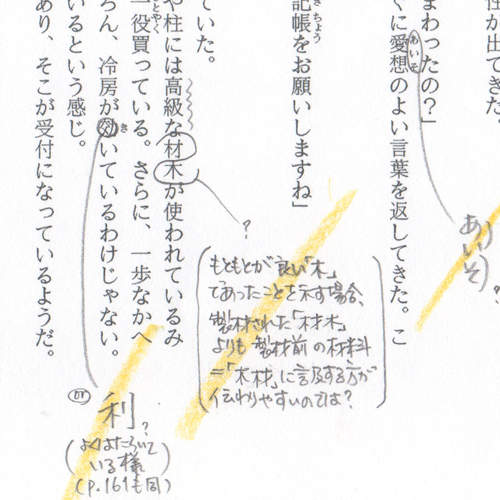 性が出てきた。
まわったの？」
ぐに愛想のよい言葉を返してきた。こ
あいそ
あいそ?
記帳をお願いしますね」
きちょう
ていた。
や柱には高級な材木が使われているみ
?
もともとが良い「木」
であったことを示す場合、
製材された「材木」
よりも製材前の材料
=「木材」に言及する方が
伝わりやすいのでは?
一役買っている。さらに、一歩なかへ
とやく
ろん、冷房が効いているわけじゃない。
き
利?
(よくはたらいて
いる様)
(p.161も同)
いるという感じ。
あり、そこが受付になっているようだ。